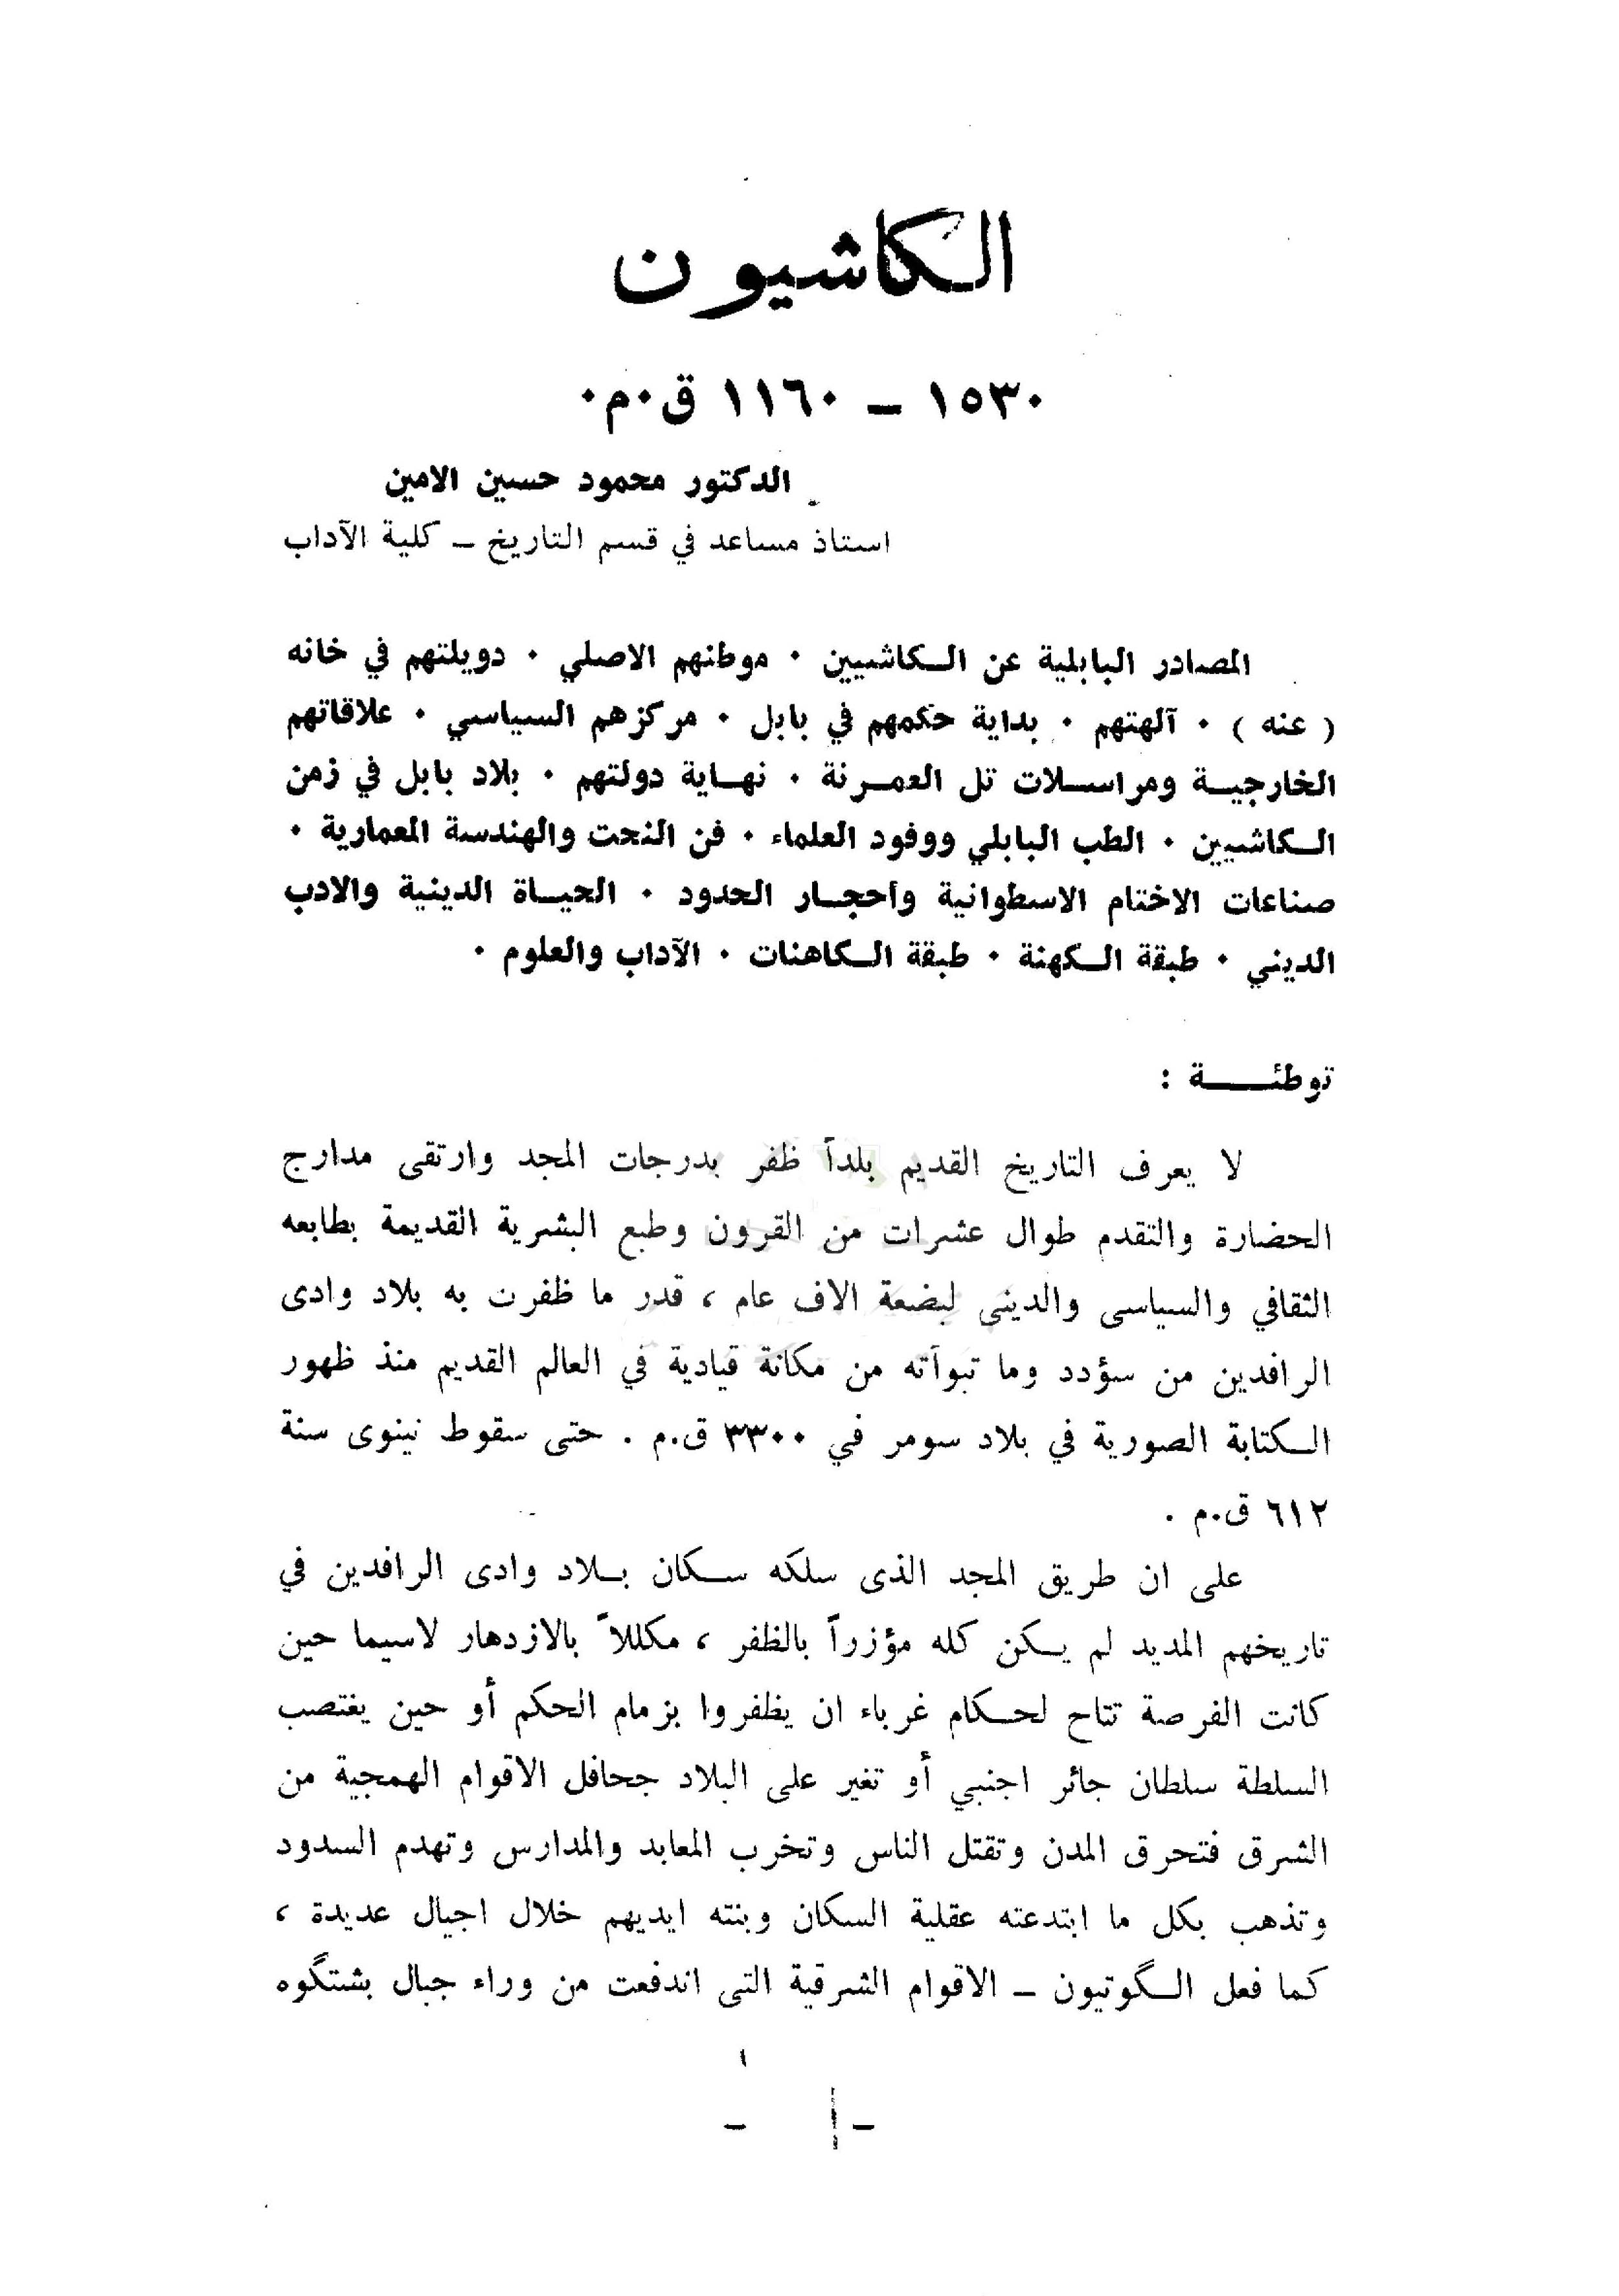 الكاشيون
١٥٣٠ – ١١٦٠ ق٠م٠
الدكتور محمود حسين الامين
استاذ مساعد في قسم التاريخ – كلية الآداب
المصادر البابلية عن الكاشيين ٠ موطنهم الاصلي ٠ دويلتهم في خانه
( عنه ) ٠ آلهتهم ٠ بداية حكمهم في بابل ٠ مركزهم السياسي ٠ علاقاتهم
الخارجية ومراسلات تل العمرنة ٠ نهاية دولتهم ٠ بلاد بابل في زمن
الكاشيين ٠ الطب البابلي ووفود العلماء ٠ فن النحت والهندسة المعمارية ٠
صناعات الاختام الاسطوانية وأحجار الحدود ٠ الحياة الدينية والادب
الديني ٠ طبقة الكهنة ٠ طبقة الكاهنات ٠ الآداب والعلوم ٠
توطئة :
لا يعرف التاريخ القديم بلداً ظفر بدرجات المجد وارتقى مدارج
الحضارة والتقدم طوال عشرات من القرون وطبع البشرية القديمة بطابعه
الثقافي والسياسى والدينى لبضعة الاف عام ، قدر ما ظفرت به بلاد وادى
الرافدين من سؤدد وما تبوأته من مكانة قيادية في العالم القديم منذ ظهور
الكتابة الصورية في بلاد سومر في ٣٣٠٠ ق.م . حتى سقوط نينوى سنة
٦١٢ ق.م .
على ان طريق المجد الذى سلكه سكان بلاد وادى الرافدين في
تاريخهم المديد لم يكن كله مؤزراً بالظفر ، مكللاً بالازدهار لاسيما حين
كانت الفرصة تتاح لحكام غرباء ان يظفروا بزمام الحكم أو حين يغتصب
السلطة سلطان جائر اجنبي أو تغير على البلاد جحافل الاقوام الهمجية من
الشرق فتحرق المدن وتقتل الناس وتخرب المعابد والمدارس وتهدم السدود
وتذهب بكل ما ابتدعته عقلية السكان وبنته ايديهم خلال اجيال عديدة ،
كما فعل الگوتيون – الاقوام الشرقية التى اندفعت من وراء جبال بشتگوه
– ١ –